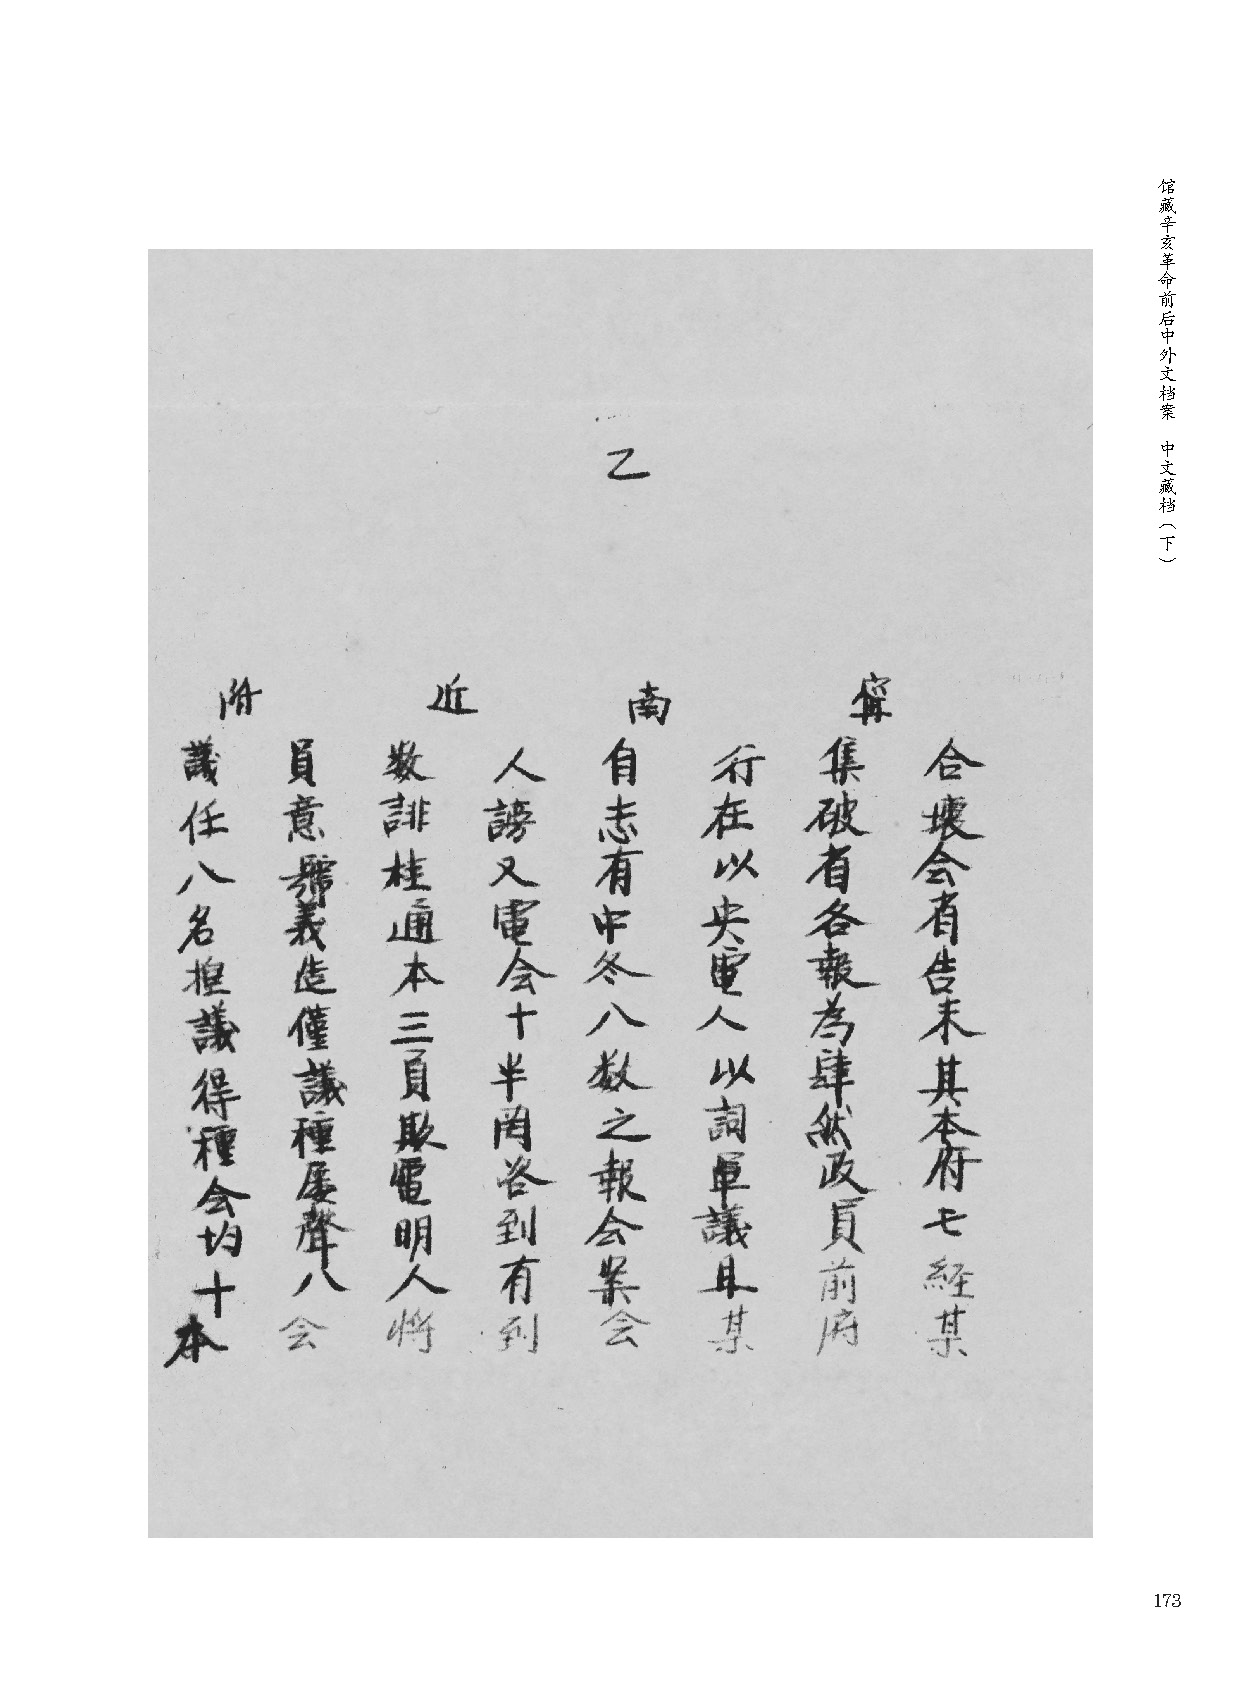 馆藏辛亥革命前后中外文档案 中文藏档（下）
乙
甯
南
近
附
合壞会省告未其本府七經某
集破省各報為肆然政員前府
行在以央電人以詞軍議且某
自志有中冬八数之報会案会
人謗又電会十半罔咨到有到
数誹桂通本三員欺電明人將
員意號義造僅議種屡聲八会
議任八名担議得種会均十本
173